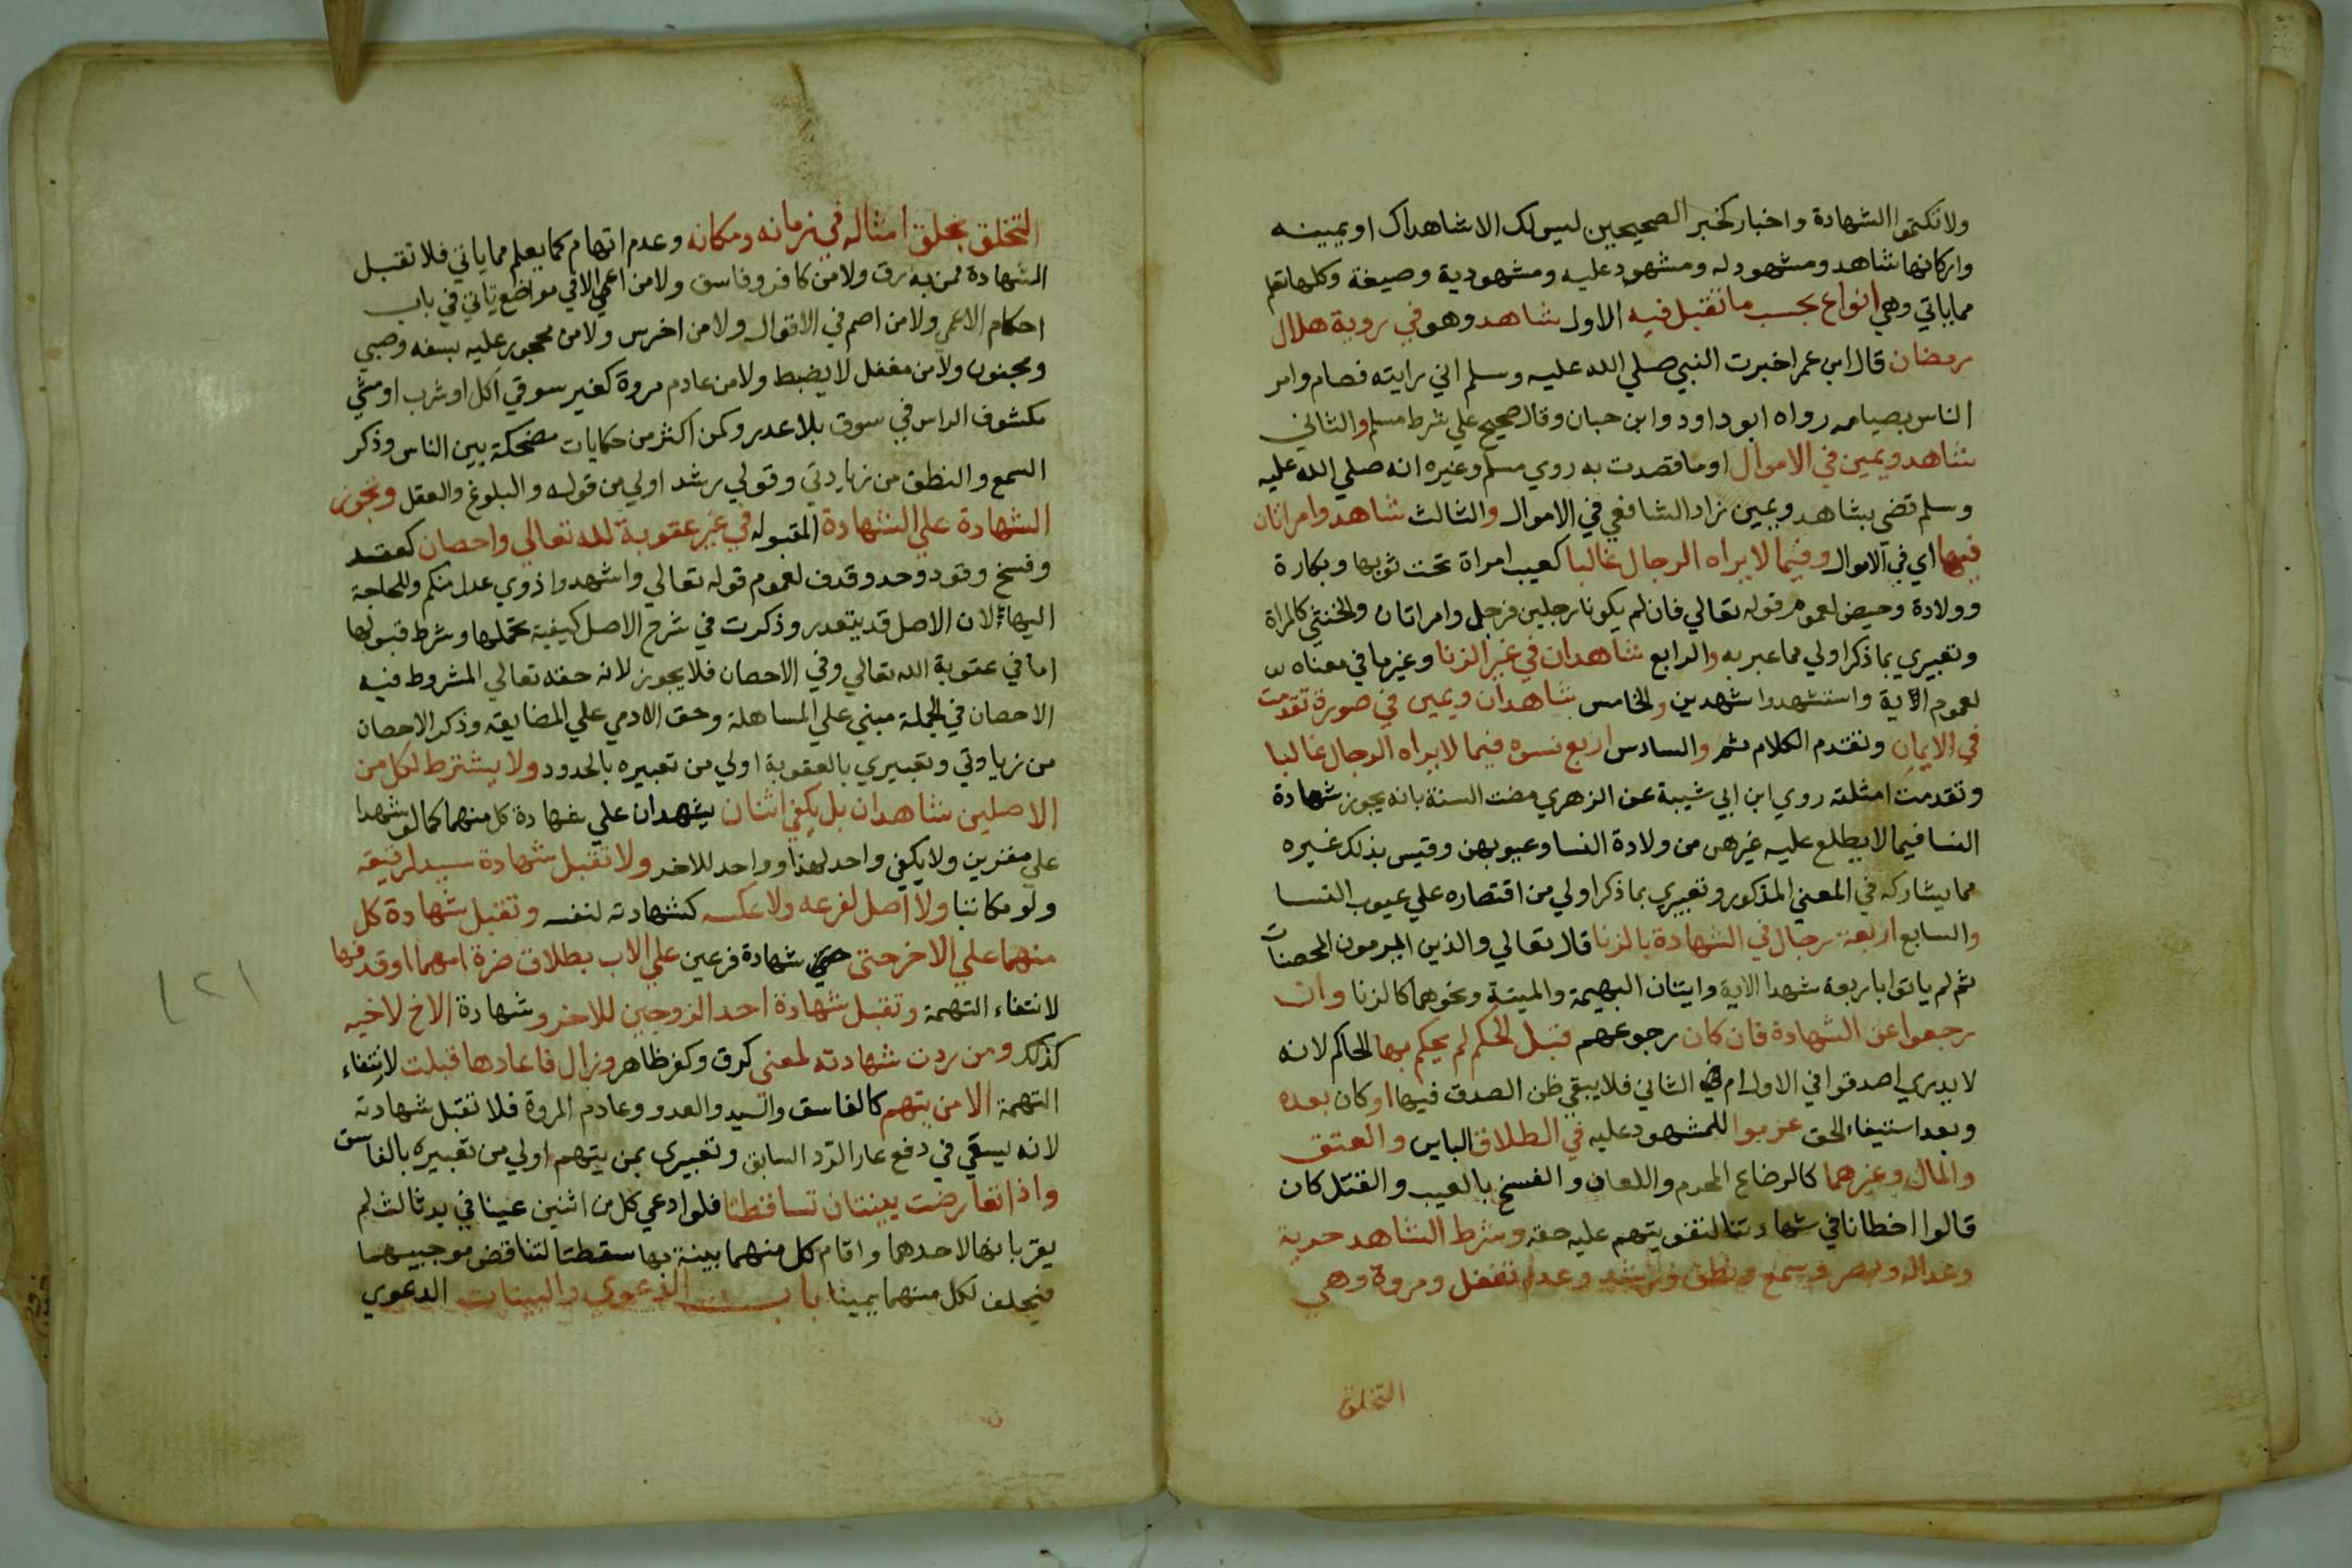 ولا تكتموا الشهادة واخبار كخبر الصحيحين ليس لك الا شاهداك او يمينه
واركانها شاهد ومشهود له ومشهود عليه ومشهود به وصيغة وكلها تعلم
مما ياتي وهي انواع بحسب ما تقبل فيه الاول شاهد وهو في روية هلال
رمضان قال ابن عمر اخبرت النبي صلي الله عليه وسلم اني رايته فصام وامر
الناس بصيامه رواه ابو داود وابن حبان وقال صحيح علي شرط مسلم والثاني
شاهد ويمين في الاموال او ما قصدت به روي مسلم وغيره انه صلي الله عليه
وسلم قضي بشاهد ويمين زاد الشافعي في الاموال والثالث شاهد وامراتان
فيها اي في الاموال وفيما لا يراه الرجال غالبا كعيب امراة تحت ثوبها وبكارة
وولادة وحيض لعموم قوله تعالي فان لم يكونا رجلين فرجل وامراتان والخنثي كالمراة
وتعبيري بما ذكر اولي مما عبر به والرابع شاهدان في غير الزنا وغير ما في معناه
لعموم الآية واستشهدوا شهدين والخامس شاهدان ويمين في صورة تقدمت
في الايمان وتقدم الكلام ثم والسادس اربع نسوه فيما لا يراه الرجال غالبا
وتقدمت امثلته روي ابن ابي شيبة عن الزهري مضت السنة بانه يجوز شهادة
النسا فيما لا يطلع عليه غيرهن من ولادة النسا وعيوبهن وقيس بذلك غيره
مما يشاركه في المعني المذكور وتعبيري بما ذكر اولي من اقتصاره علي عيوب النسا
والسابع اربعة رجال في الشهادة بالزنا قال تعالي والذين يرمون المحصنات
ثم لم ياتوا باربعه شهدا الاية وايتان البهيمة والميتة ونحوهما كالزنا وان
رجعوا عن الشهادة فان كان رجوعهم قبل الحكم لم يحكم بها الحاكم لانه
لا يدري اصدقوا في الاول ام في الثاني فلا يبقي ظن الصدق فيها او كان بعده
وبعد استيفاء الحق غرموا للمشهود عليه في الطلاق الباين والعتق
والمال وغيرهما كالرضاع المحرم واللعان والفسخ بالعيب والقتل كان
قالوا اخطانا في شهادتنا لتفويتهم عليه حقه وشرط الشاهد حرية
وعدالة وبصر وسمع ونطق ورشد وعدم تغفل ومروة وهي
التخلق
التخلق بخلق امثاله في زمانه ومكانه وعدم اتهام كما يعلم مما ياتي فلا تقبل
الشهادة ممن به رق ولا من كافر وفاسق ولا من اعمي الا في مواضع تاتي في باب
احكام الاعمي ولا من اصم في الاقوال ولا من اخرس ولا من محجور عليه بسفه وصبي
ومجنون ولا من مغفل لا يضبط ولا من عادم مروة كغير سوقي اكل او شرب او مشي
مكشوف الراس في سوق بلا عذر وكمن اكثر من حكايات مضحكة بين الناس وذكر
السمع والنطق من زيادتي وقولي رشد اولي من قوله والبلوغ والعقل وتجوز
الشهادة علي الشهادة المقبوله في غير عقوبة لله تعالي واحصان كعقد
وفسخ وقود وحد وقذف لعموم قوله تعالي واشهدوا ذوي عدل منكم وللحاجة
اليها لان الاصل قد يتعذر وذكرت في شرح الاصل كيفية تحملها وشرط قبولها
اما في عقوبة الله تعالي وفي الاحصان فلا يجوز لانه حقه تعالي المشروط فيه
الاحصان في الجملة مبني علي المساهلة وحق الادمي علي المضايقه وذكر الاحصان
من زيادتي وتعبيري بالعقوبة اولي من تعبيره بالحدود ولا يشترط لكل من
الاصلين شاهدان بل يكفي اثنان يشهدان علي شهادة كل منهما كما لو شهدا
علي مقرين ولا يكفي واحد لهذا وواحد للاخر ولا تقبل شهادة سيد لرقيقه
ولو مكاتبا ولا اصل لفرعه ولا عكسه كشهادته لنفسه وتقبل شهادة كل
منهما علي الاخر حتي شهادة فرعين علي الاب بطلاق ضرة امهما او قذفها
لانتفاء التهمة وتقبل شهادة احد الزوجين للاخر وشهادة الاخ لاخيه
كذلك ومن ردت شهادته لمعني كرق وكفر ظاهر وزال فاعادها قبلت لانتفاء
التهمة الا من يتهم كالفاسق والسيد والعدو وعادم المروة فلا تقبل شهادته
لانه يسعي في دفع عار الرد السابق وتعبيري بمن يتهم اولي من تعبيره بالفاسق
واذا تعارضت بينتان تساقطتا فلو ادعي كل من اثنين عينا في يد ثالث لم
يقر بانها لاحدهما واقام كل منهما بينة بها سقطتا لتناقض موجبيهما
فيحلف لكل منهما يمينا باب الدعوي والبينات الدعوي
١٢١